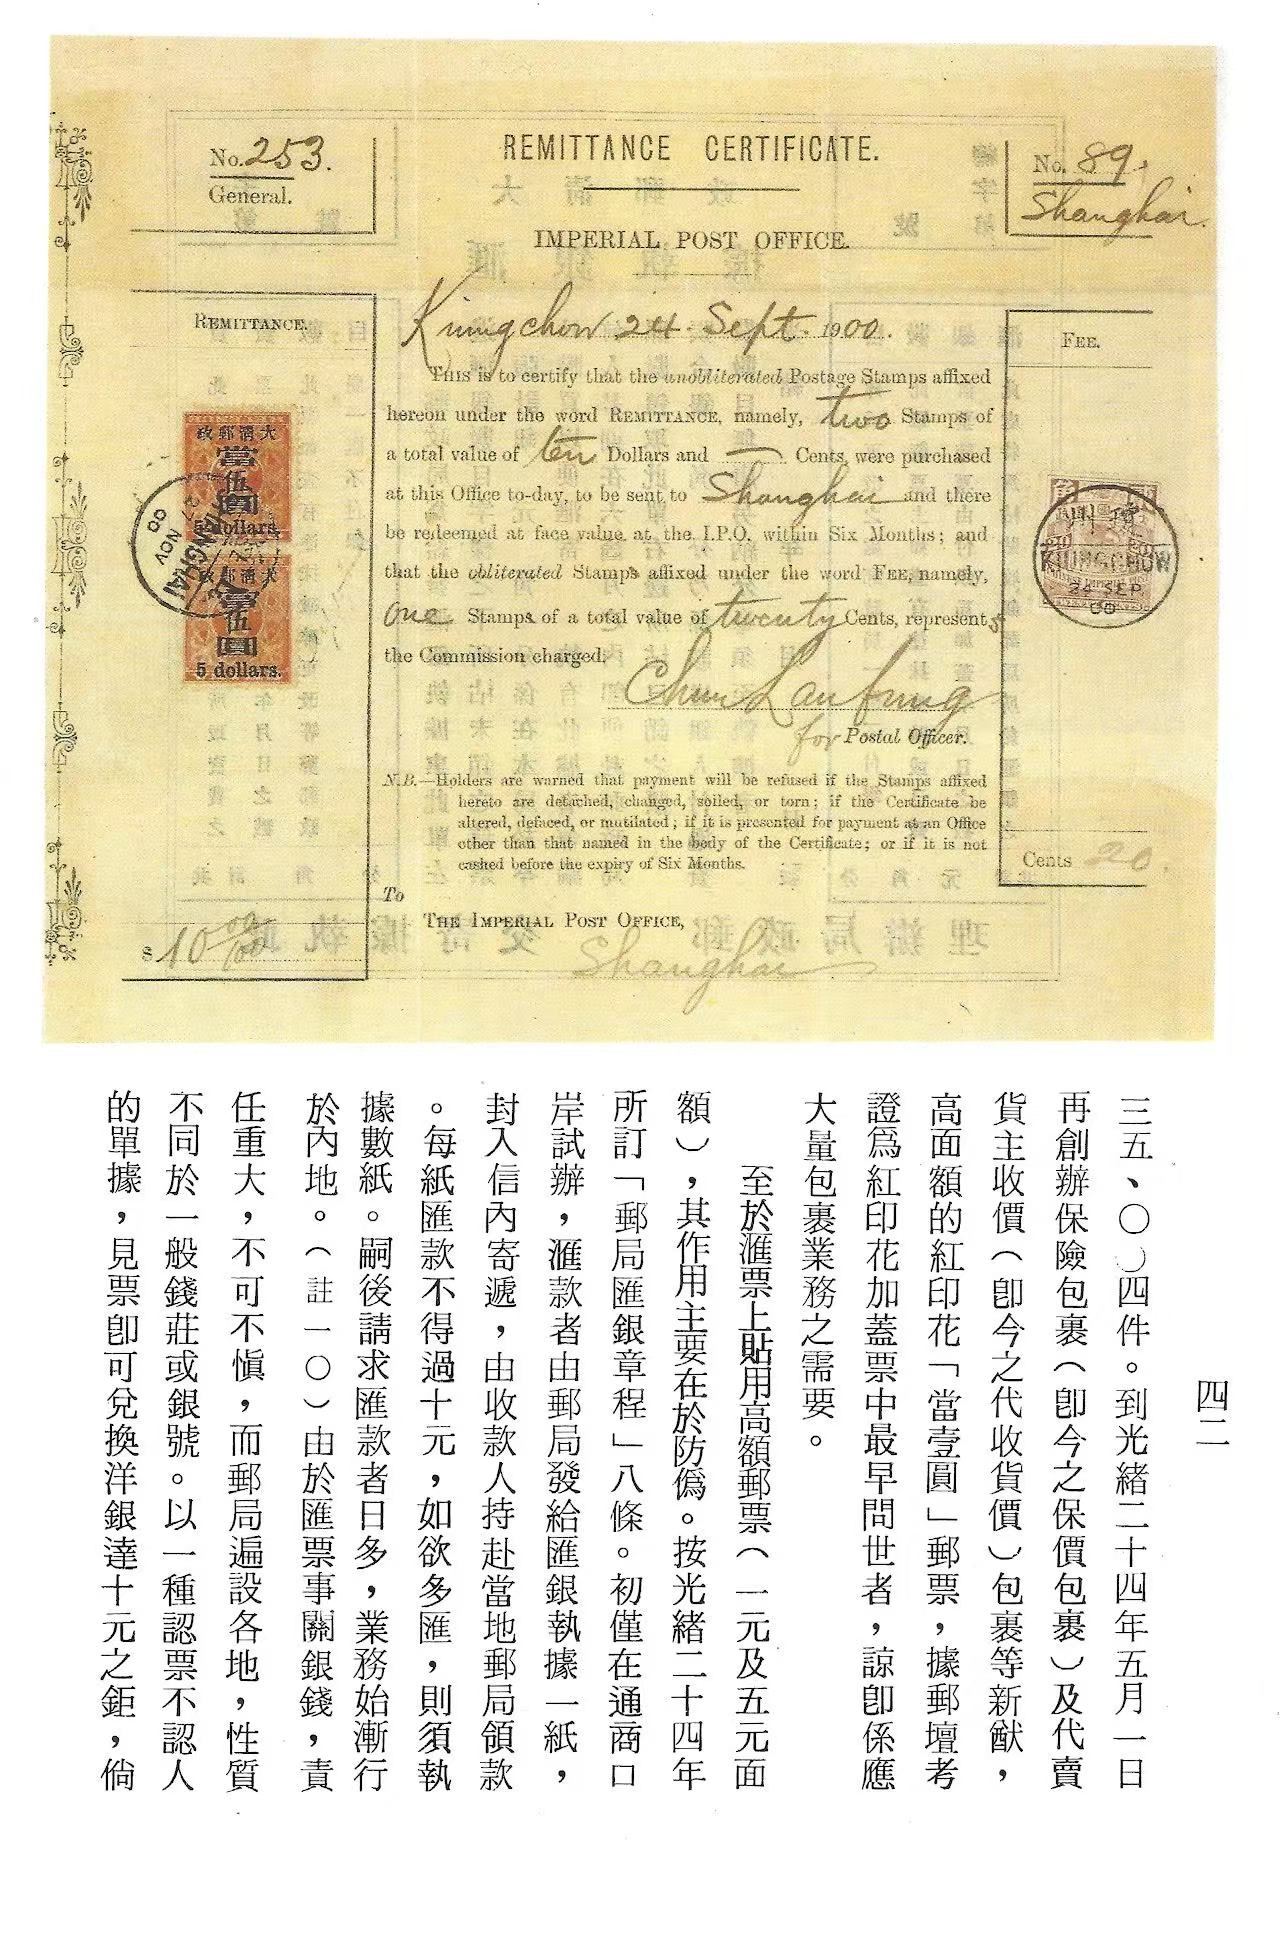 REMITTANCE CERTIFICATE.
No. 253.
General.
No. 89.
Shanghai.
IMPERIAL POST OFFICE.
REMITTANCE.
FEE.
Kiungchow 24 Sept. 1900.
This is to certify that the unobliterated Postage Stamps affixed
hereon under the word REMITTANCE, namely, two Stamps of
a total value of ten Dollars and — Cents, were purchased
at this Office to-day, to be sent to Shanghai and there
be redeemed at face value at the I.P.O. within Six Months; and
that the obliterated Stamps affixed under the word FEE, namely,
one Stamps of a total value of twenty Cents, represents
the Commission charged.
Chun Lau fung
for Postal Officer.
N.B.—Holders are warned that payment will be refused if the Stamps affixed
hereto are detached, changed, soiled, or torn; if the Certificate be
altered, defaced, or mutilated; if it is presented for payment at an Office
other than that named in the body of the Certificate; or if it is not
cashed before the expiry of Six Months.
To
THE IMPERIAL POST OFFICE,
Shanghai
大清郵政
當
伍
圓
5 dollars.
大清郵政
當
伍
圓
5 dollars.
SHANGHAI
27 NOV
00
瓊州
KIUNGCHOW
24 SEP
00
Cents 20.
$ 10 00/00
四二
三五、〇〇四件。到光緒二十四年五月一日
再創辦保險包裹（卽今之保價包裹）及代賣
貨主收價（卽今之代收貨價）包裹等新猷，
高面額的紅印花「當壹圓」郵票，據郵壇考
證爲紅印花加蓋票中最早問世者，諒卽係應
大量包裹業務之需要。
至於滙票上貼用高額郵票（一元及五元面
額），其作用主要在於防僞。按光緒二十四年
所訂「郵局匯銀章程」八條。初僅在通商口
岸試辦，滙款者由郵局發給匯銀執據一紙，
封入信內寄遞，由收款人持赴當地郵局領款
。每紙匯款不得過十元，如欲多匯，則須執
據數紙。嗣後請求匯款者日多，業務始漸行
於內地。（註一〇）由於匯票事關銀錢，責
任重大，不可不愼，而郵局遍設各地，性質
不同於一般錢莊或銀號。以一種認票不認人
的單據，見票卽可兌換洋銀達十元之鉅，倘